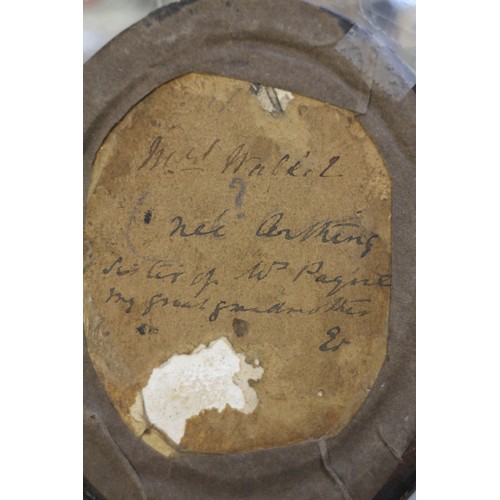 Mrs Walker
?
née Arthing
Sister of Mrs Payne
my great grandmother